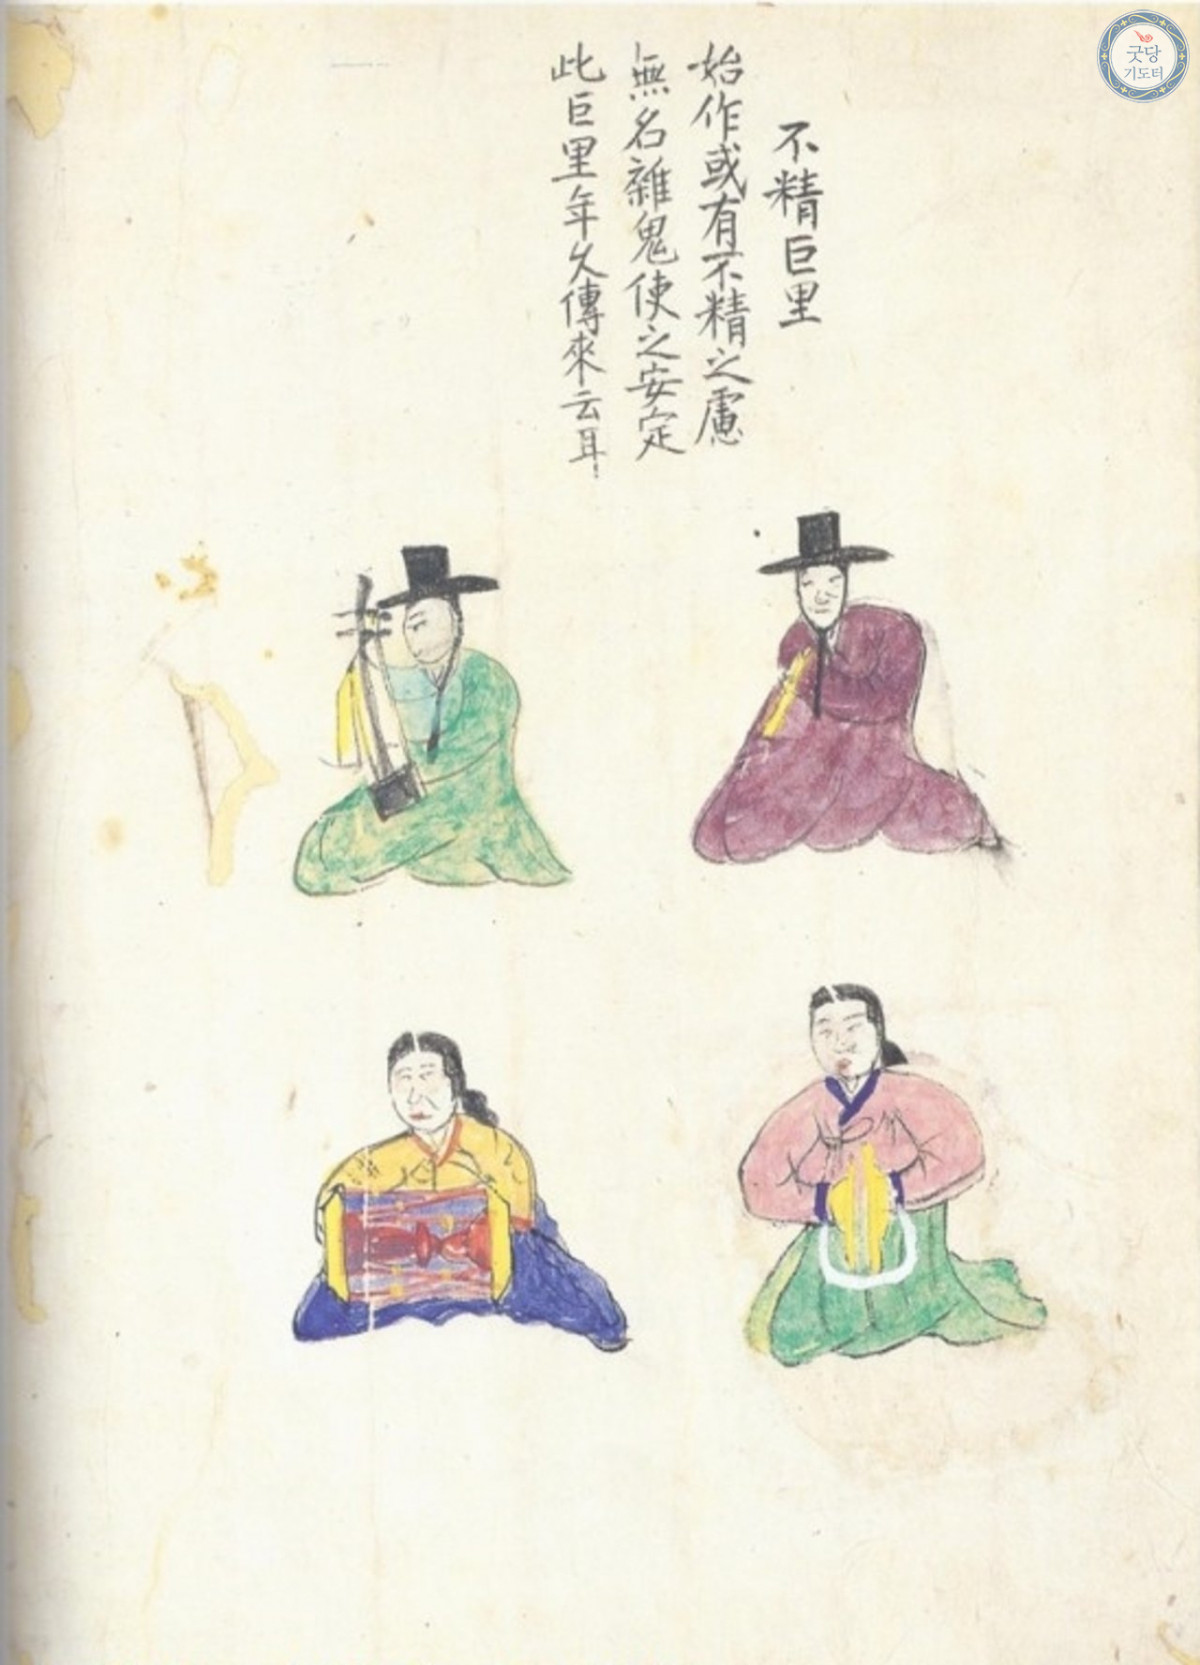 不精巨里
始作或有不精之慮
無名雜鬼使之安定
此巨里年久傳來云耳
굿당
기도터